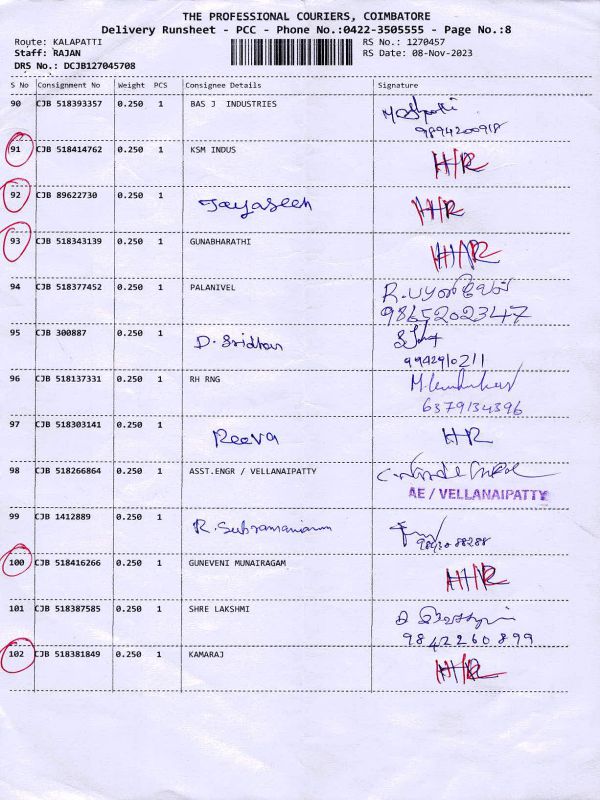 THE PROFESSIONAL COURIERS, COIMBATORE
Delivery Runsheet - PCC - Phone No.:0422-3505555 - Page No.:8
Route: KALAPATTI RS No.: 1270457
Staff: RAJAN RS Date: 08-Nov-2023
DRS No.: DCJB127045708
S No Consignment No Weight PCS Consignee Details Signature
90 CJB 518393357 0.250 1 BAS J INDUSTRIES
9894200918
91 CJB 518414762 0.250 1 KSM INDUS H/R
92 CJB 89622730 0.250 1 Jayaseeh H/R
93 CJB 518343139 0.250 1 GUNABHARATHI H/R
94 CJB 518377452 0.250 1 PALANIVEL
9865202347
95 CJB 300887 0.250 1 D. Sridhar
9942910211
96 CJB 518137331 0.250 1 RH RNG
6379134396
97 CJB 518303141 0.250 1 Reeva H/R
98 CJB 518266864 0.250 1 ASST.ENGR / VELLANAIPATTY
AE / VELLANAIPATTY
99 CJB 1412889 0.250 1 R. Subramaniam
100 CJB 518416266 0.250 1 GUNEVENI MUNAIRAGAM H/R
101 CJB 518387585 0.250 1 SHRE LAKSHMI
9842260899
102 CJB 518381849 0.250 1 KAMARAJ H/R